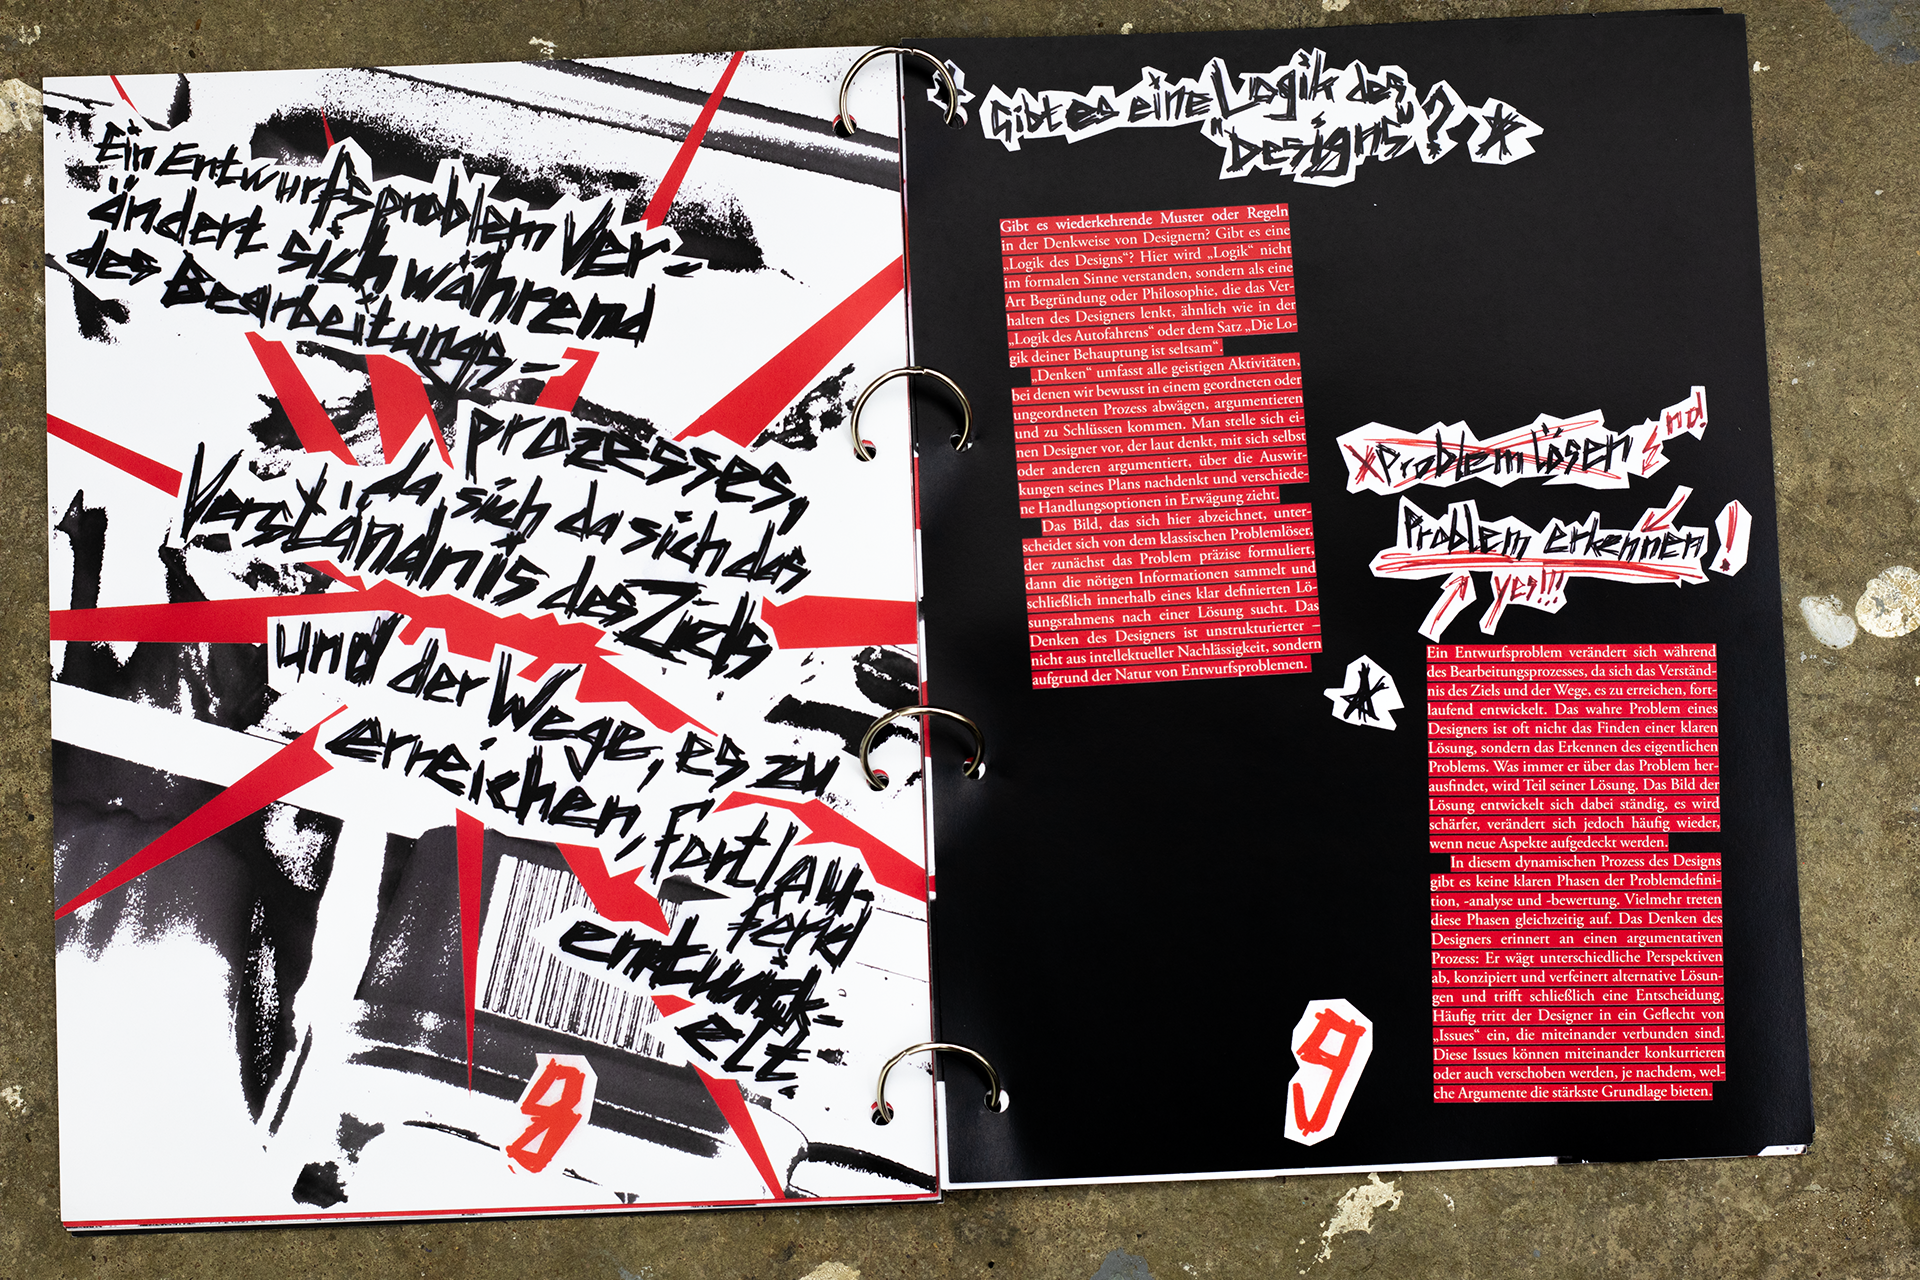 Ein Entwurfsproblem ver-
ändert sich während
des Bearbeitungs-
prozesses,
da sich da sich das
Verständnis des Ziels
und der Wege, es zu
erreichen, fortlau-
fend
entwick-
elt.
8
* Gibt es eine Logik des
"Designs"? *
Gibt es wiederkehrende Muster oder Regeln
in der Denkweise von Designern? Gibt es eine
„Logik des Designs“? Hier wird „Logik“ nicht
im formalen Sinne verstanden, sondern als eine
Art Begründung oder Philosophie, die das Ver-
halten des Designers lenkt, ähnlich wie in der
„Logik des Autofahrens“ oder dem Satz „Die Lo-
gik deiner Behauptung ist seltsam“.
„Denken“ umfasst alle geistigen Aktivitäten,
bei denen wir bewusst in einem geordneten oder
ungeordneten Prozess abwägen, argumentieren
und zu Schlüssen kommen. Man stelle sich ei-
nen Designer vor, der laut denkt, mit sich selbst
oder anderen argumentiert, über die Auswir-
kungen seines Plans nachdenkt und verschiede-
ne Handlungsoptionen in Erwägung zieht.
Das Bild, das sich hier abzeichnet, unter-
scheidet sich von dem klassischen Problemlöser,
der zunächst das Problem präzise formuliert,
dann die nötigen Informationen sammelt und
schließlich innerhalb eines klar definierten Lö-
sungsrahmens nach einer Lösung sucht. Das
Denken des Designers ist unstrukturierter –
nicht aus intellektueller Nachlässigkeit, sondern
aufgrund der Natur von Entwurfsproblemen.
x Problem lösen
Problem erkennen!
yes!!!
*
Ein Entwurfsproblem verändert sich während
des Bearbeitungsprozesses, da sich das Verständ-
nis des Ziels und der Wege, es zu erreichen, fort-
laufend entwickelt. Das wahre Problem eines
Designers ist oft nicht das Finden einer klaren
Lösung, sondern das Erkennen des eigentlichen
Problems. Was immer er über das Problem her-
ausfindet, wird Teil seiner Lösung. Das Bild der
Lösung entwickelt sich dabei ständig, es wird
schärfer, verändert sich jedoch häufig wieder,
wenn neue Aspekte aufgedeckt werden.
In diesem dynamischen Prozess des Designs
gibt es keine klaren Phasen der Problemdefini-
tion, -analyse und -bewertung. Vielmehr treten
diese Phasen gleichzeitig auf. Das Denken des
Designers erinnert an einen argumentativen
Prozess: Er wägt unterschiedliche Perspektiven
ab, konzipiert und verfeinert alternative Lösun-
gen und trifft schließlich eine Entscheidung.
Häufig tritt der Designer in ein Geflecht von
„Issues“ ein, die miteinander verbunden sind.
Diese Issues können miteinander konkurrieren
oder auch verschoben werden, je nachdem, wel-
che Argumente die stärkste Grundlage bieten.
9